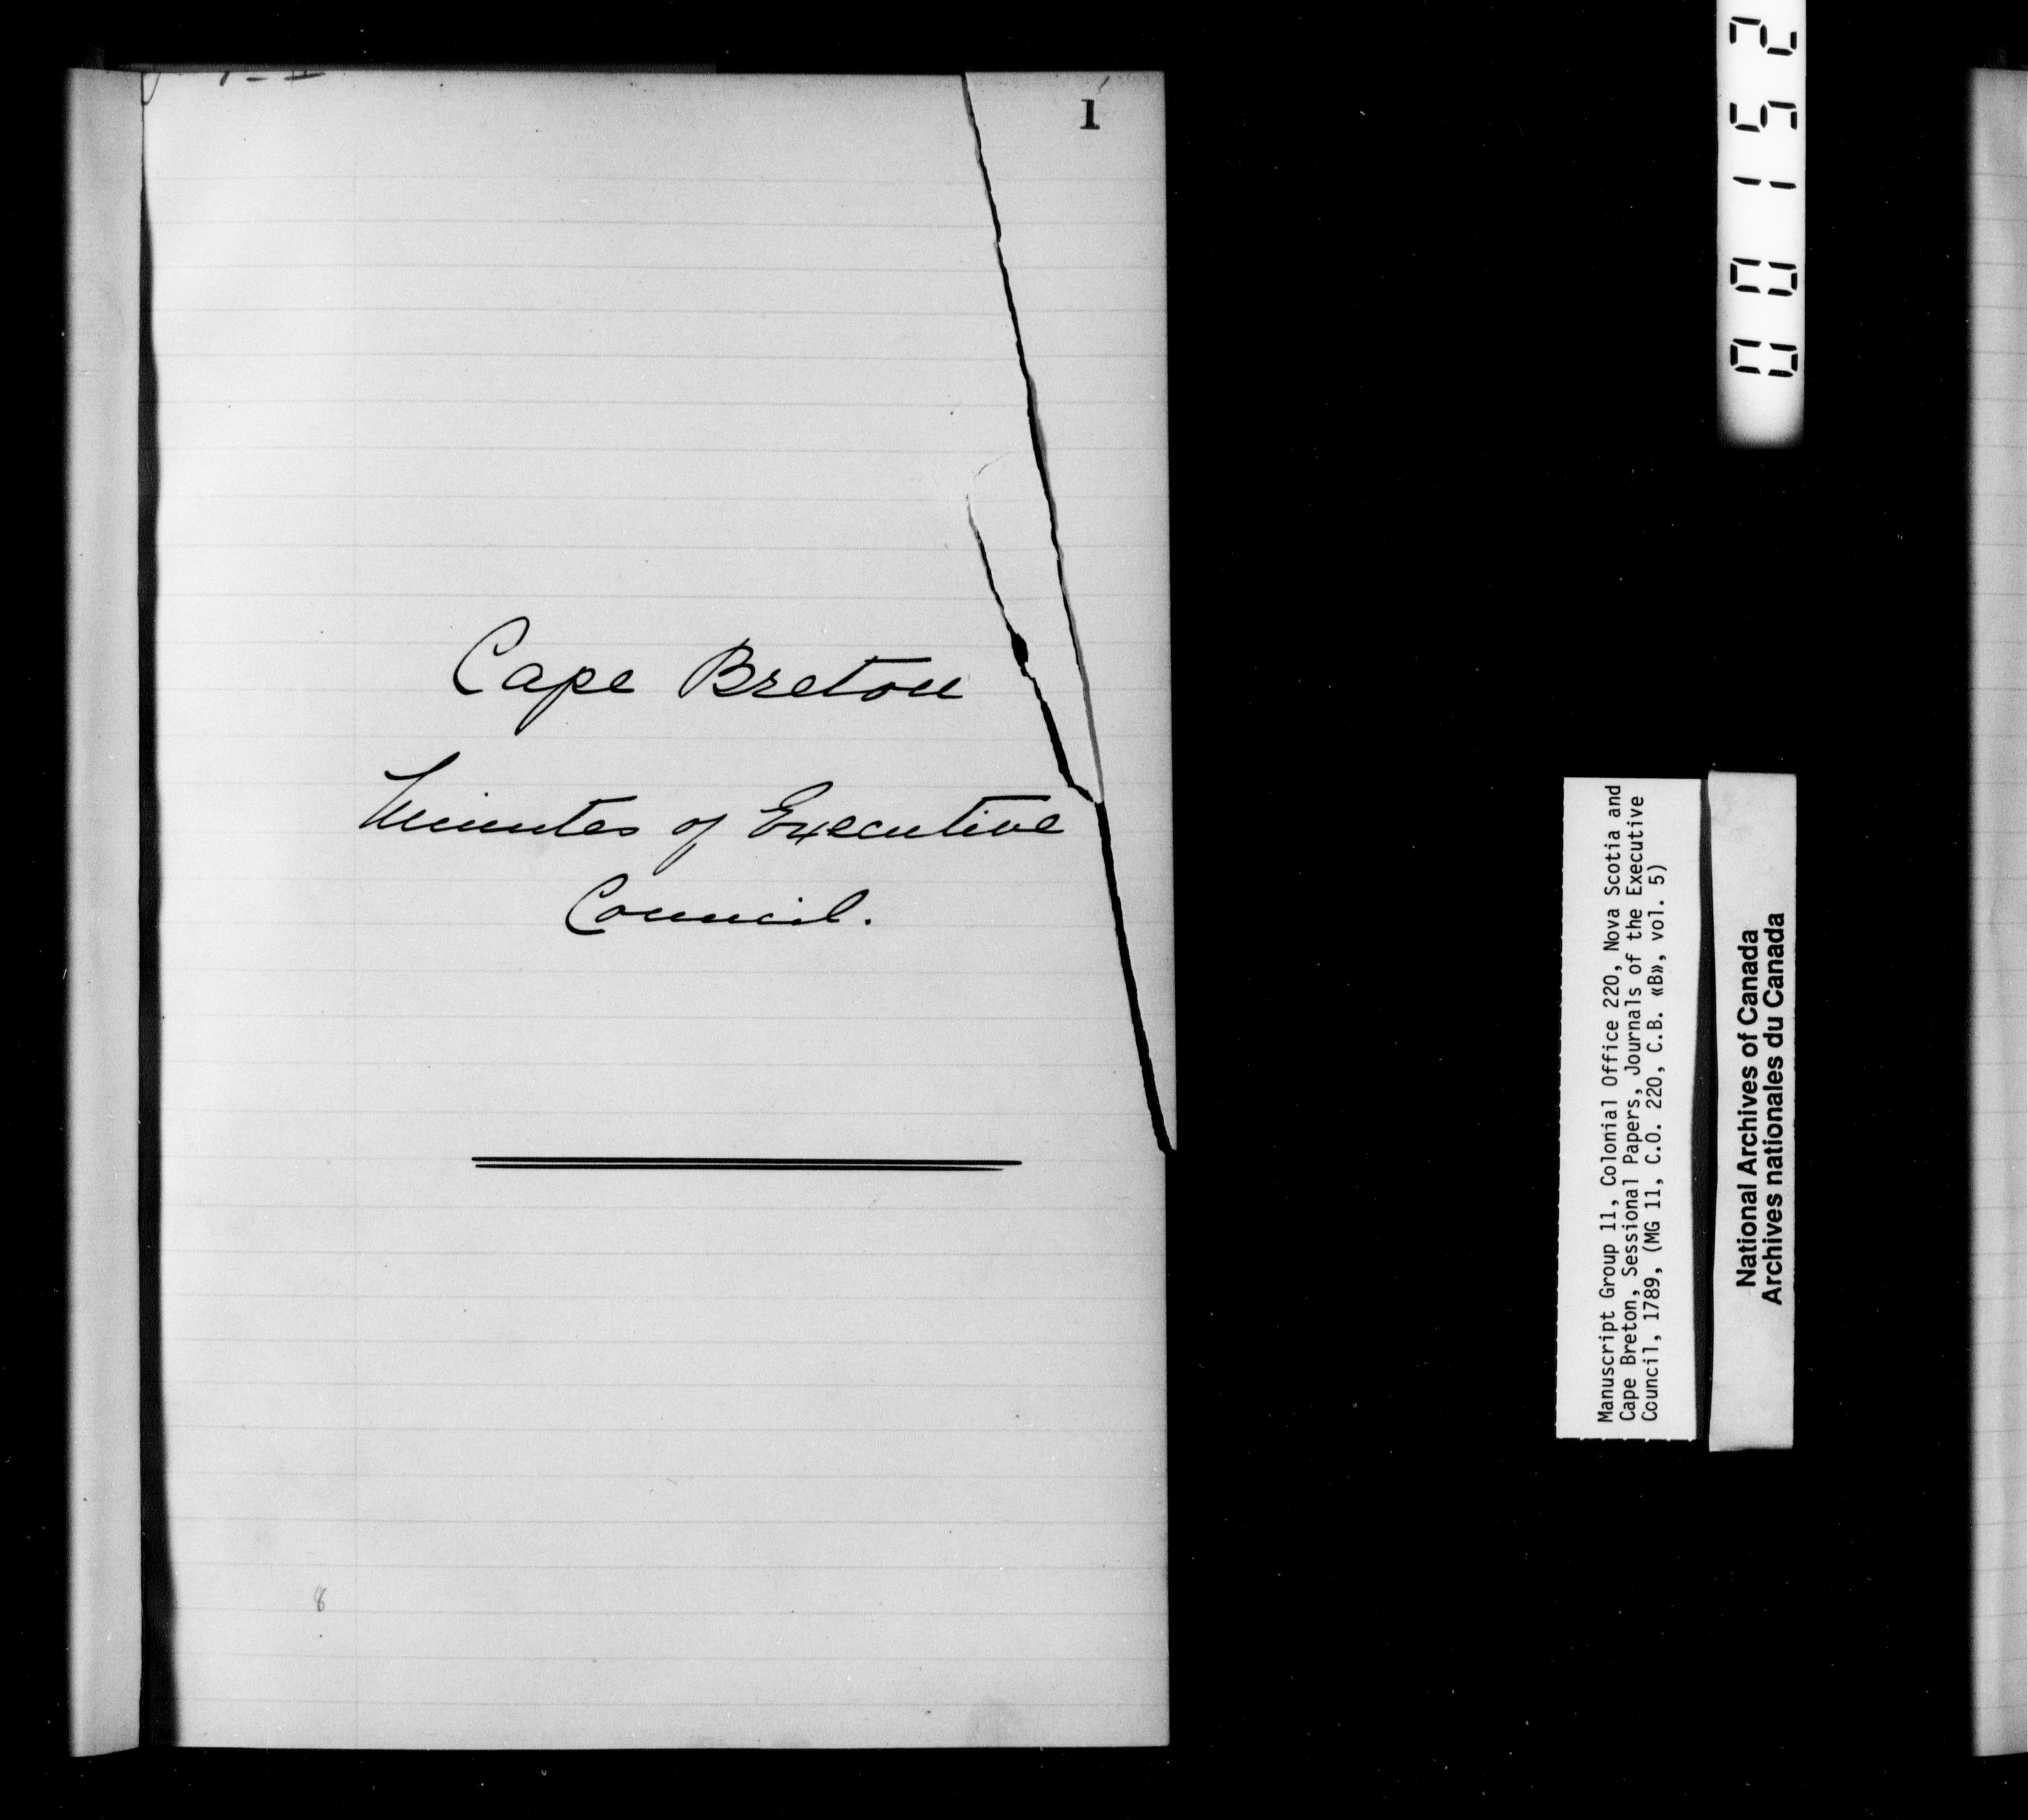 1
Cape Breton
Minutes of Executive
Council.
8
000152
Manuscript Group 11, Colonial Office 220, Nova Scotia and
Cape Breton, Sessional Papers, Journals of the Executive
Council, 1789, (MG 11, C.O. 220, C.B. «B», vol. 5)
National Archives of Canada
Archives nationales du Canada